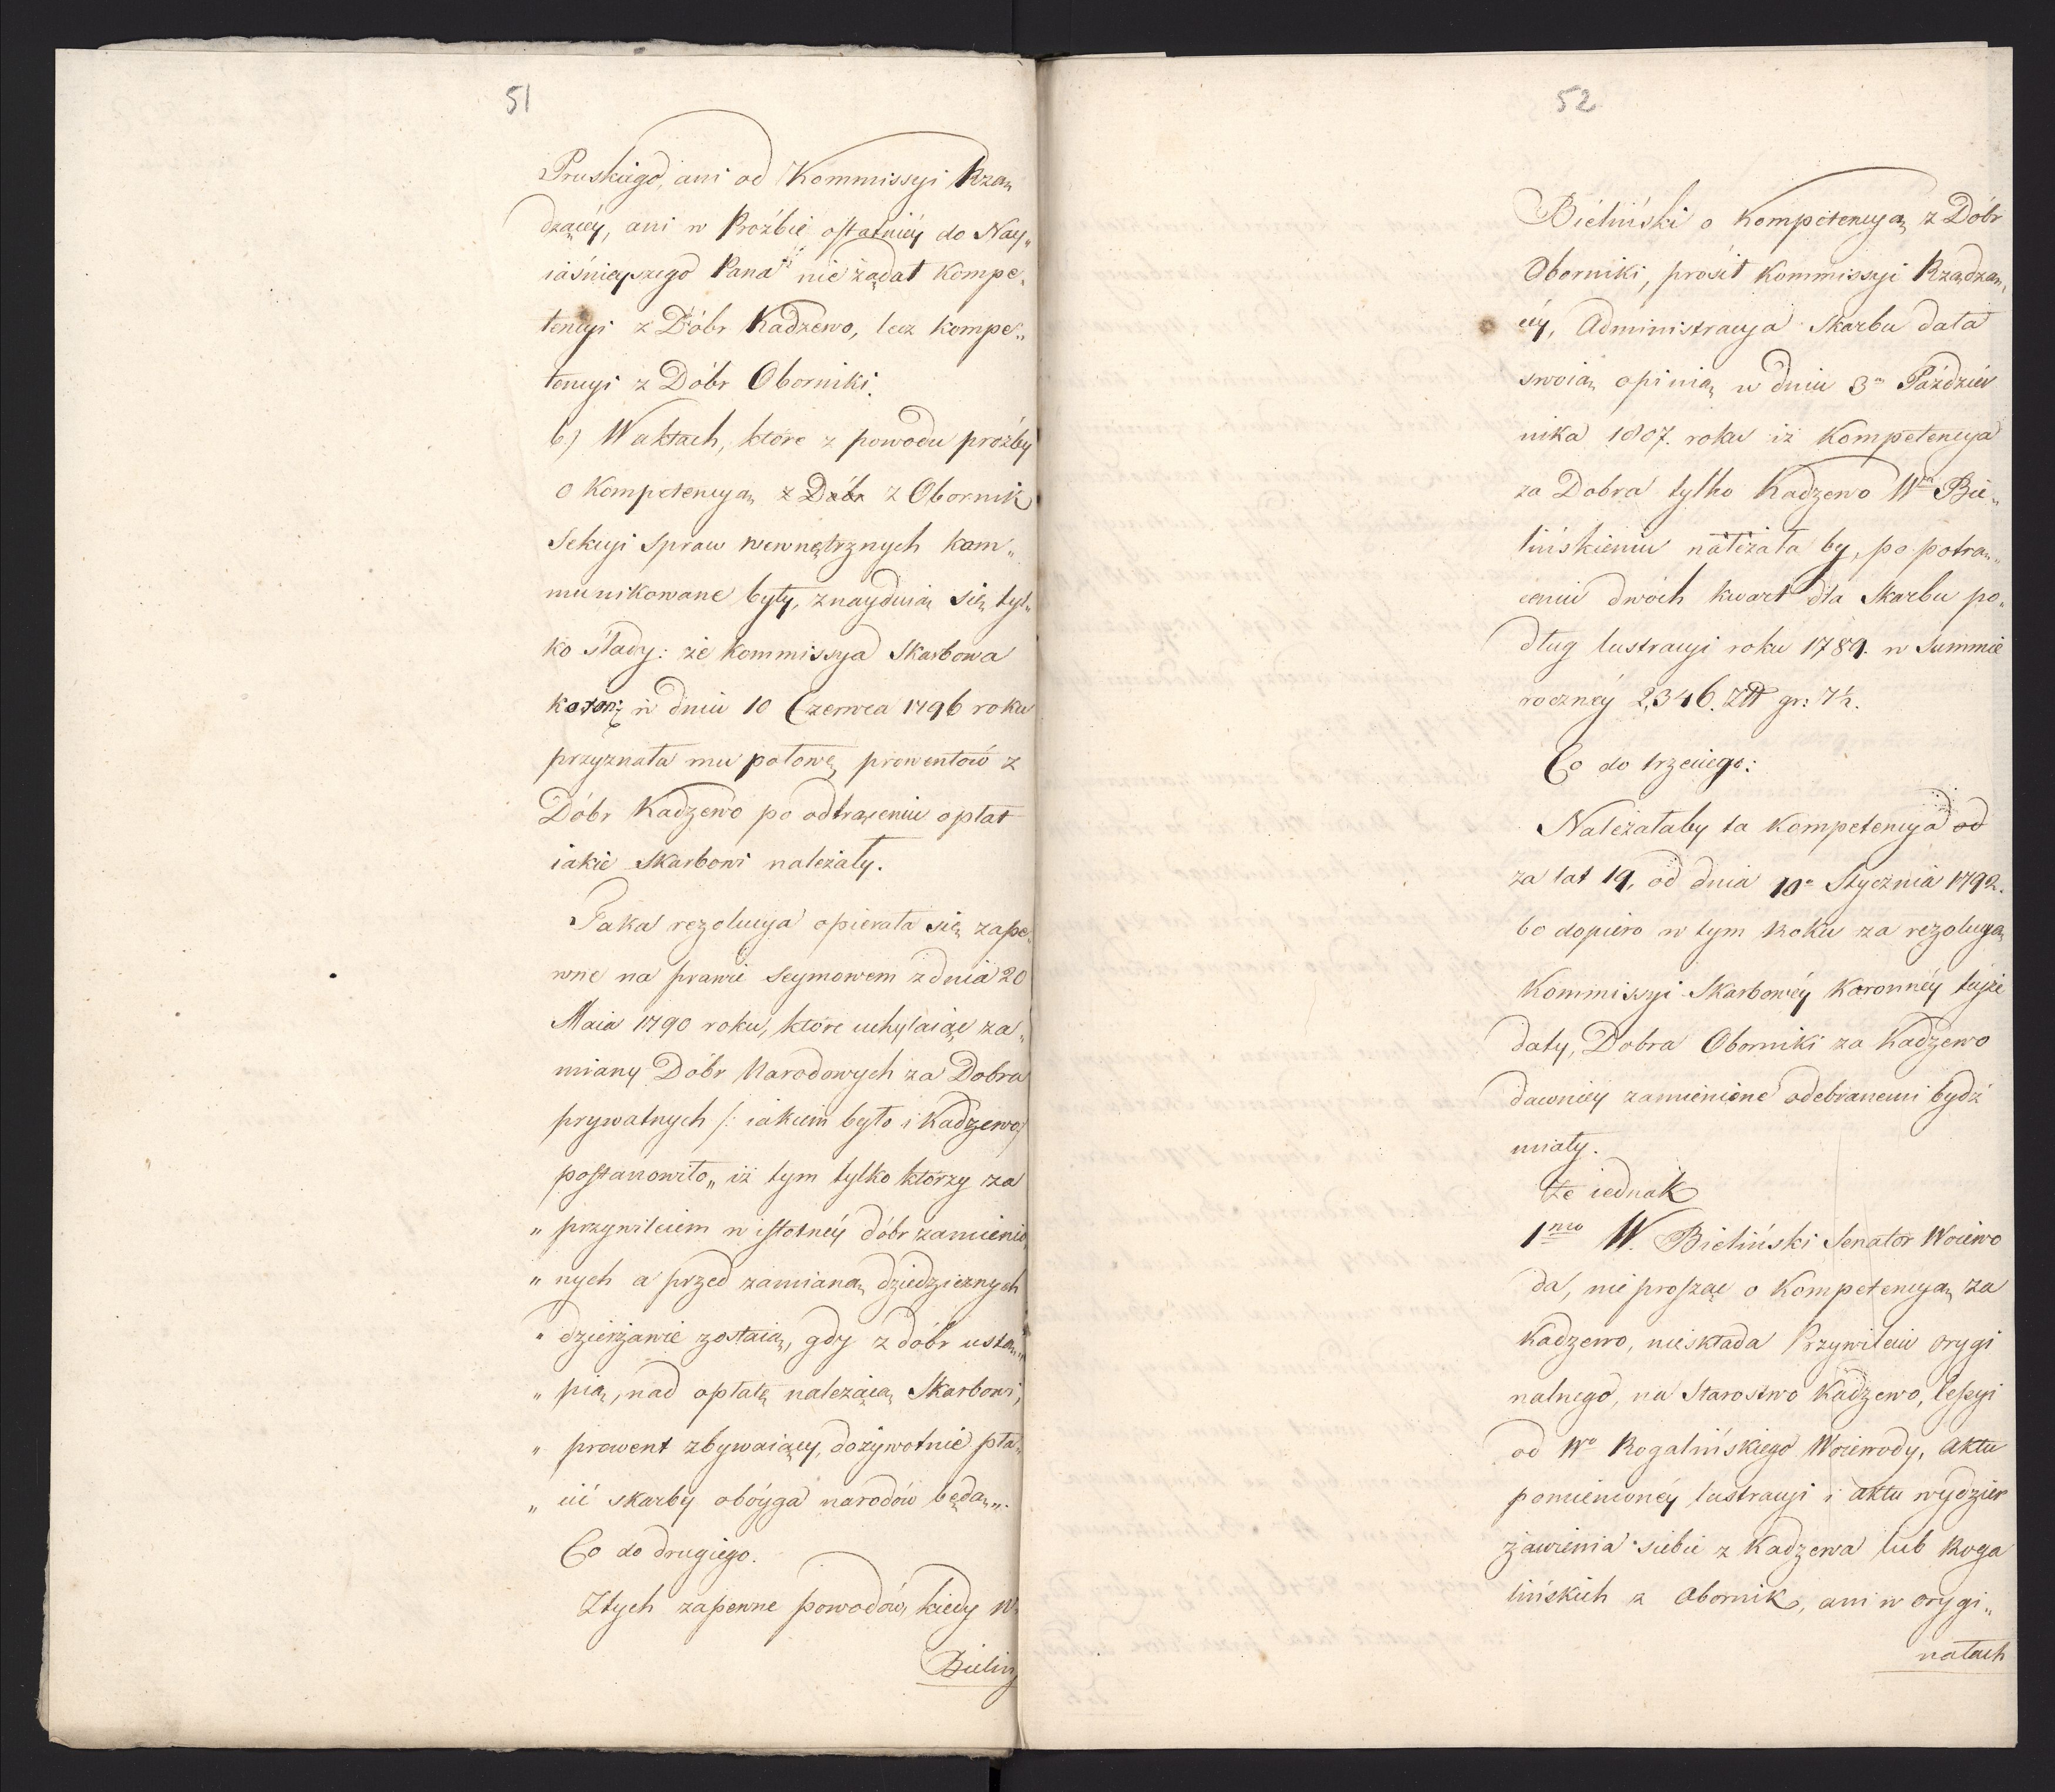 51
Pruskiego, ani od Kommissyi Rzą„
dzącéy, ani w Proźbie ostatniéy do Nay„
iaśnieyszego Pana nie żądał Kompe„
tencyi z Dóbr Kadzewo, lecz kompe„
tencyi z Dóbr Oborniki.
b) W aktach, które z powodu proźby
o Kompetencyą z Dóbr z Obornik
Sekcyi Spraw wewnętrznych kom„
munikowane były, znayduią się tyl„
ko ślady: że Kommissya Skarbowa
Koron: w dniu 10 Czerwca 1796 roku
przyznała mu połowę prowentów z
Dóbr Kadzewo po odtrąceniu opłat
iakie Skarbowi należały.
Taka rezolucya opierała się zape„
wne na prawie Seymowem z dnia 20
Maia 1790 roku, które uchylaiąc za„
miany Dóbr Narodowych za Dobra
prywatnych /: iakiém było i Kadzewo/
postanowiło „ iż tym tylko którzy za
„ przywileiem w istotnéy dóbr zamienio
„ nych a przed zamianą dziedzicznych
„ dzierżawie zostaią, gdy z dóbr ustą„
„ pią, nad opłatę należącą Skarbowi,
„ prowent zbywaiący, dożywotnie pła„
„ cić skarby oboyga narodów będą„.
Co do drugiego.
Z tych zapewne powodów, kiedy W.
Bieliń
52
Bieliński o Kompetencyą z Dóbr
Oborniki, prosił Kommissyi Rządzą„
céy, Administracya Skarbu dała
swoią opinią w dniu 3º Paździer
nika 1807. roku iż Kompetencya
za Dobra tylko Kadzewo Wmu Bie„
lińskiemu należała by, po potrą„
ceniu dwóch kwart dla Skarbu po„
dług lustracyi roku 1789. w Summie
rocznéy 2,346. Złł gr: 7½.
Co do trzeciego:
Należałaby ta kompetencya od
za lat 19, od dnia 10º Stycznia 1792.
bo dopiero w tym Roku za rezolucyą
Kommissyi Skarbowéy Koronnéy téjże
daty, Dobra Oborniki za Kadzewo
dawniéy zamienione odebranemi bydź
miały.
Że iednak
1mo W. Bieliński Senator Woiewo
da, nie prosząc o Kompetencyą za
Kadzewo, nieskłada Przywileiu orygi
nalnego, na Starostwo Kadzewo, Cessyi
od Wo Rogalińskiego Woiewody, Aktu
pomienionéy lustracyi i aktu wydzier
żawienia siebie z Kadzewa lub Roga
lińskich z Obornik, ani w orygi„
nałach